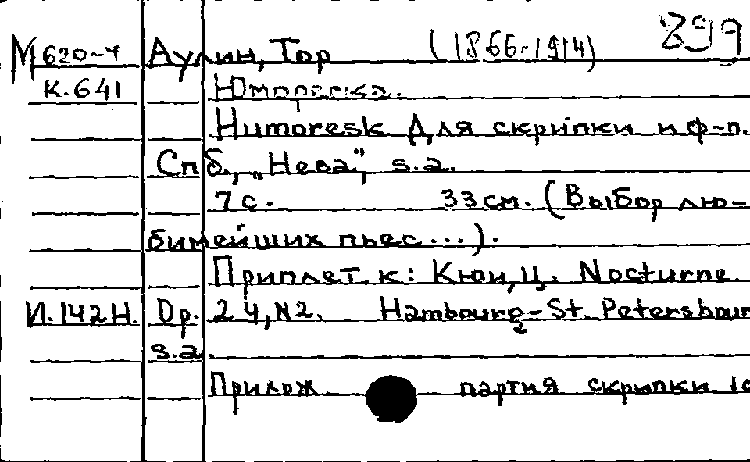 899
М 620-4 Аулин, Тор (1866-1914)
К. 641 Юмореска.
Humoresk Для скрипки и ф-п.
Спб., „Нева", s.a.
7с. 33 см. (Выбор лю-
бимейших пьес...).
Приплет. к: Кюи, Ц. Nocturne.
И. 142 Н. Op. 24, N2. Hambourg-St. Petersbour
s.a.
Прилож партия скрипки 1с